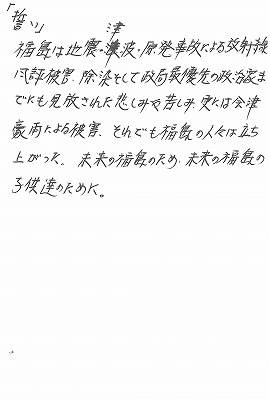 「誓い」
福島は地震・津波・原発事故による放射線
風評被害、除染そして政局最優先の政治家ま
でにも見放された悲しみや苦しみ、更には会津
豪雨による被害、それでも福島の人々は立ち
上がった。未来の福島のため、未来の福島の
子供達のために。